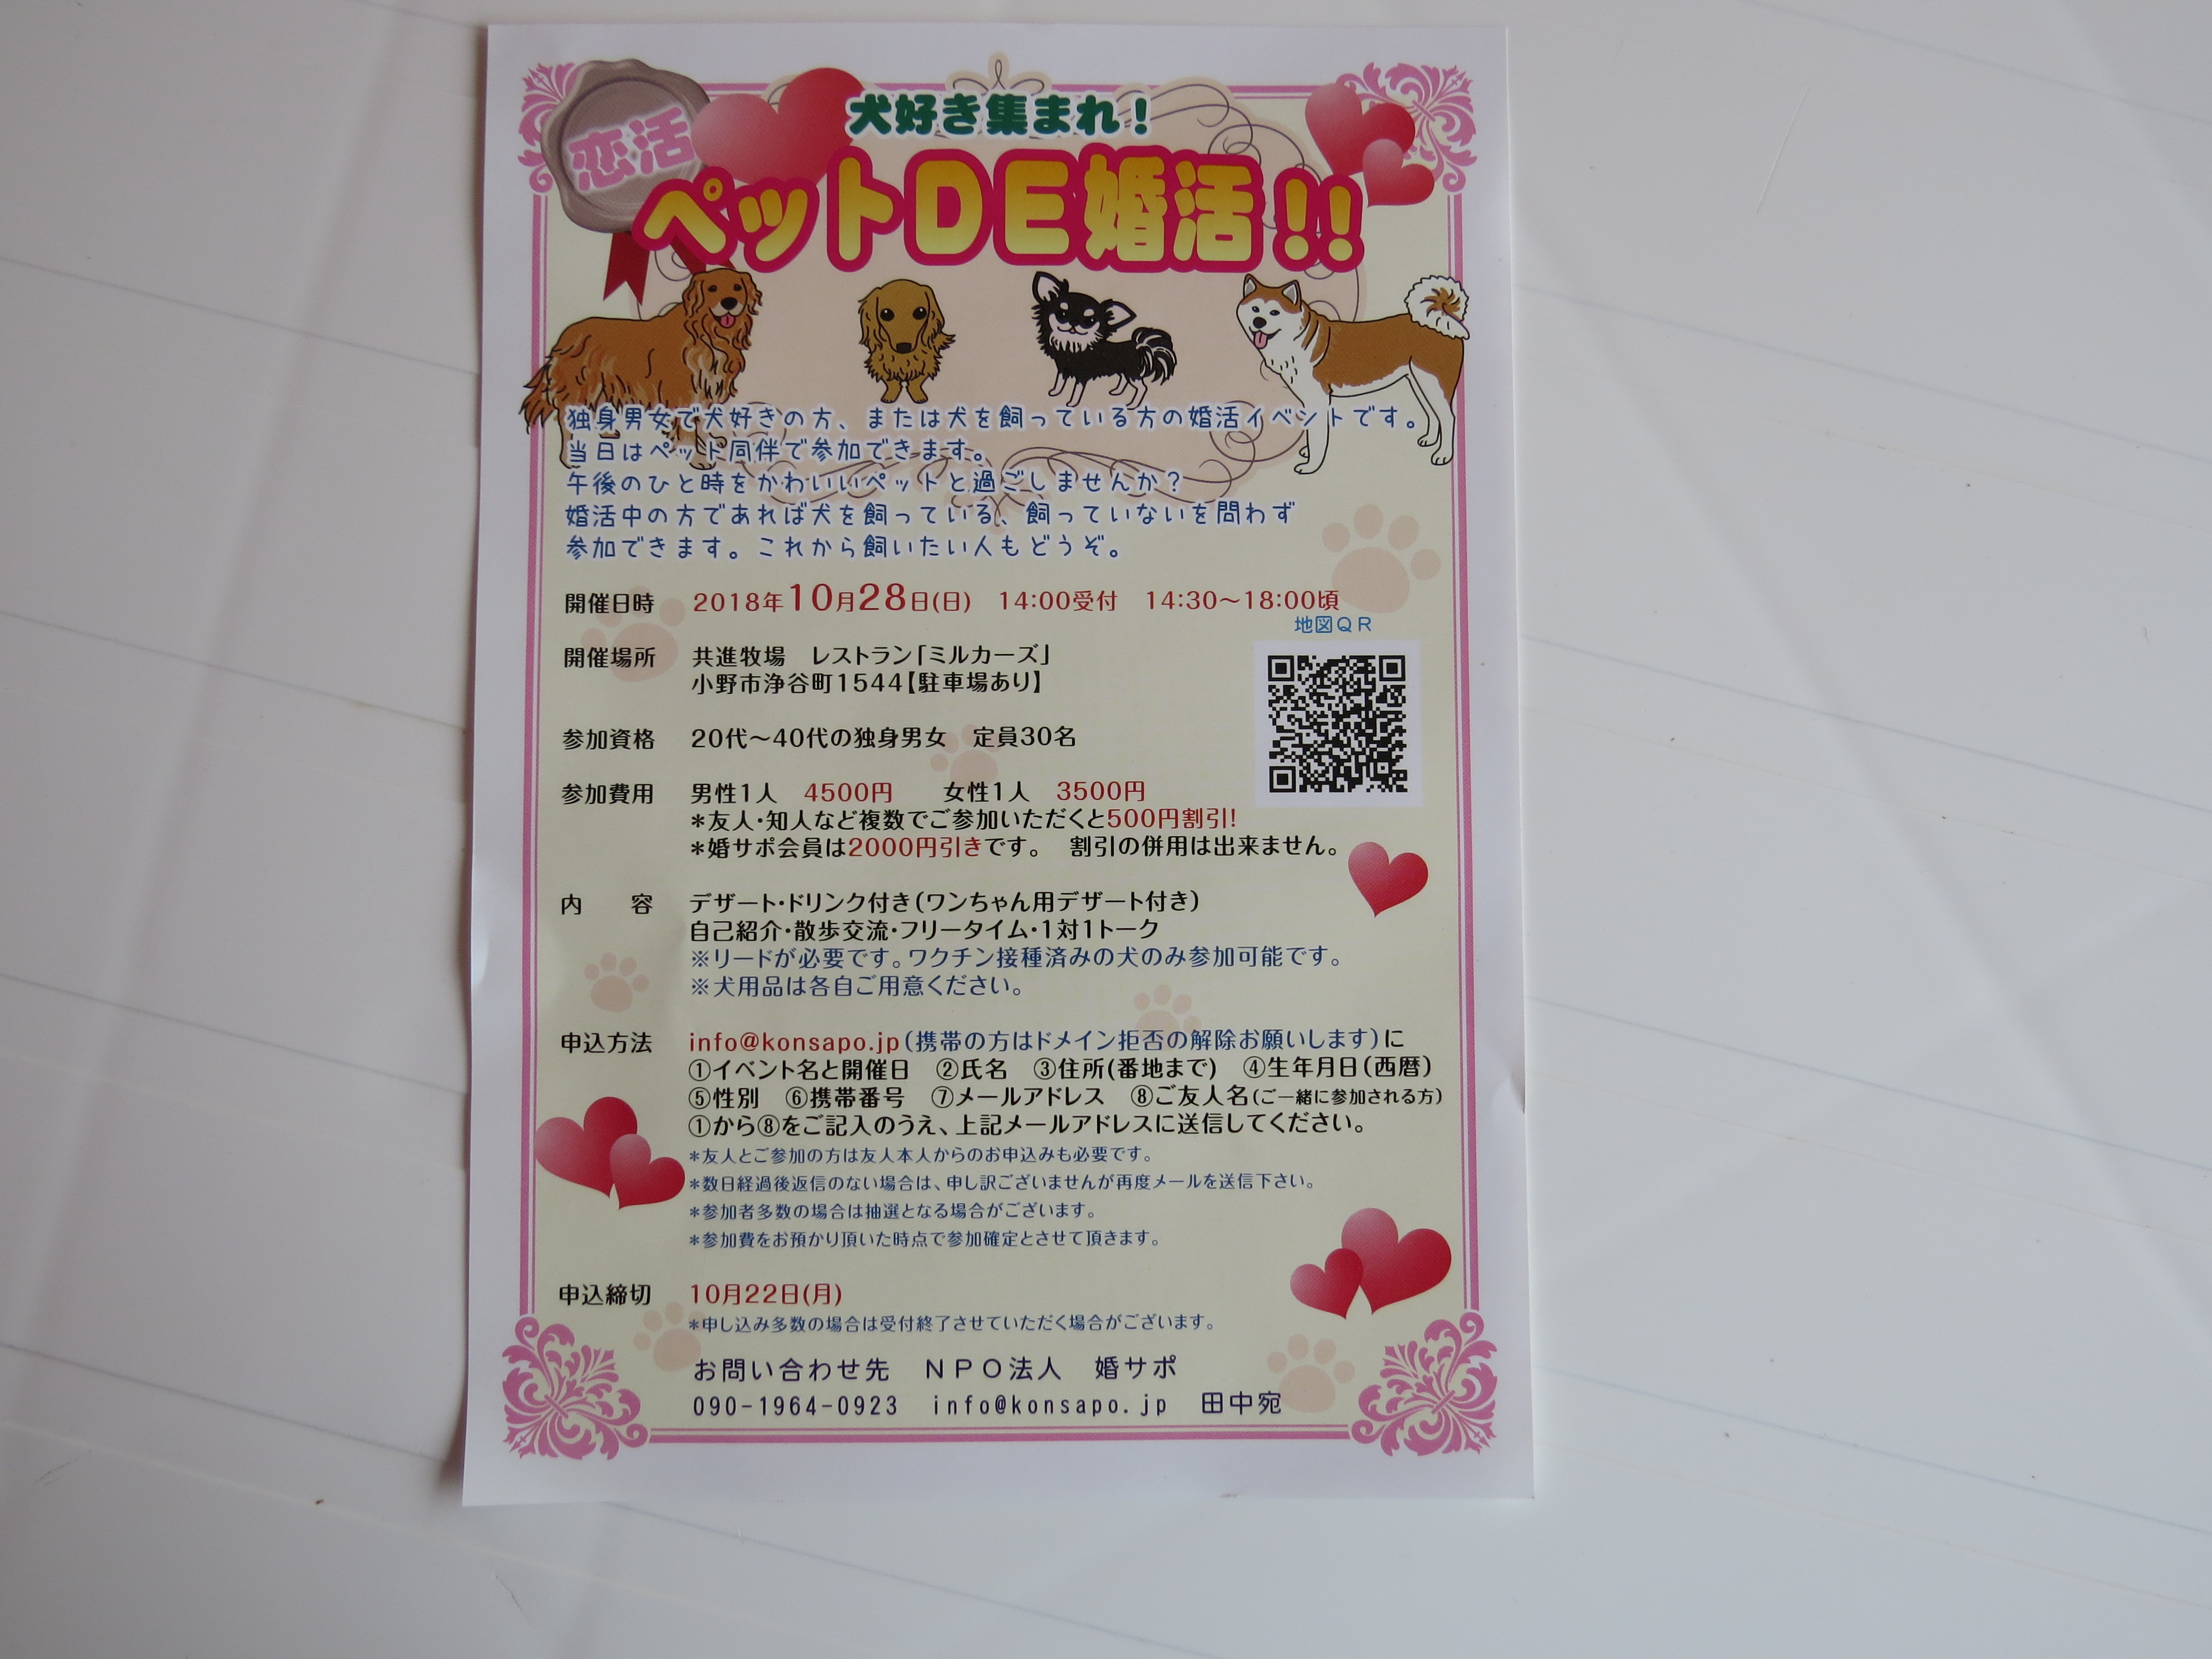 犬好き集まれ！
恋活
ペットDE婚活!!
独身男女で犬好きの方、または犬を飼っている方の婚活イベントです。
当日はペット同伴で参加できます。
午後のひと時をかわいいペットと過ごしませんか？
婚活中の方であれば犬を飼っている、飼っていないを問わず
参加できます。これから飼いたい人もどうぞ。
開催日時 2018年10月28日(日) 14:00受付 14:30〜18:00頃
地図QR
開催場所 共進牧場 レストラン「ミルカーズ」
小野市浄谷町1544【駐車場あり】
参加資格 20代〜40代の独身男女 定員30名
参加費用 男性1人 4500円 女性1人 3500円
*友人・知人など複数でご参加いただくと500円割引!
*婚サポ会員は2000円引きです。 割引の併用は出来ません。
内 容 デザート・ドリンク付き(ワンちゃん用デザート付き)
自己紹介・散歩交流・フリータイム・1対1トーク
※リードが必要です。ワクチン接種済みの犬のみ参加可能です。
※犬用品は各自ご用意ください。
申込方法 info@konsapo.jp(携帯の方はドメイン拒否の解除お願いします)に
①イベント名と開催日 ②氏名 ③住所(番地まで) ④生年月日(西暦)
⑤性別 ⑥携帯番号 ⑦メールアドレス ⑧ご友人名(ご一緒に参加される方)
①から⑧をご記入のうえ、上記メールアドレスに送信してください。
*友人とご参加の方は友人本人からのお申込みも必要です。
*数日経過後返信のない場合は、申し訳ございませんが再度メールを送信下さい。
*参加者多数の場合は抽選となる場合がございます。
*参加費をお預かり頂いた時点で参加確定とさせて頂きます。
申込締切 10月22日(月)
*申し込み多数の場合は受付終了させていただく場合がございます。
お問い合わせ先 NPO法人 婚サポ
090-1964-0923 info@konsapo.jp 田中宛